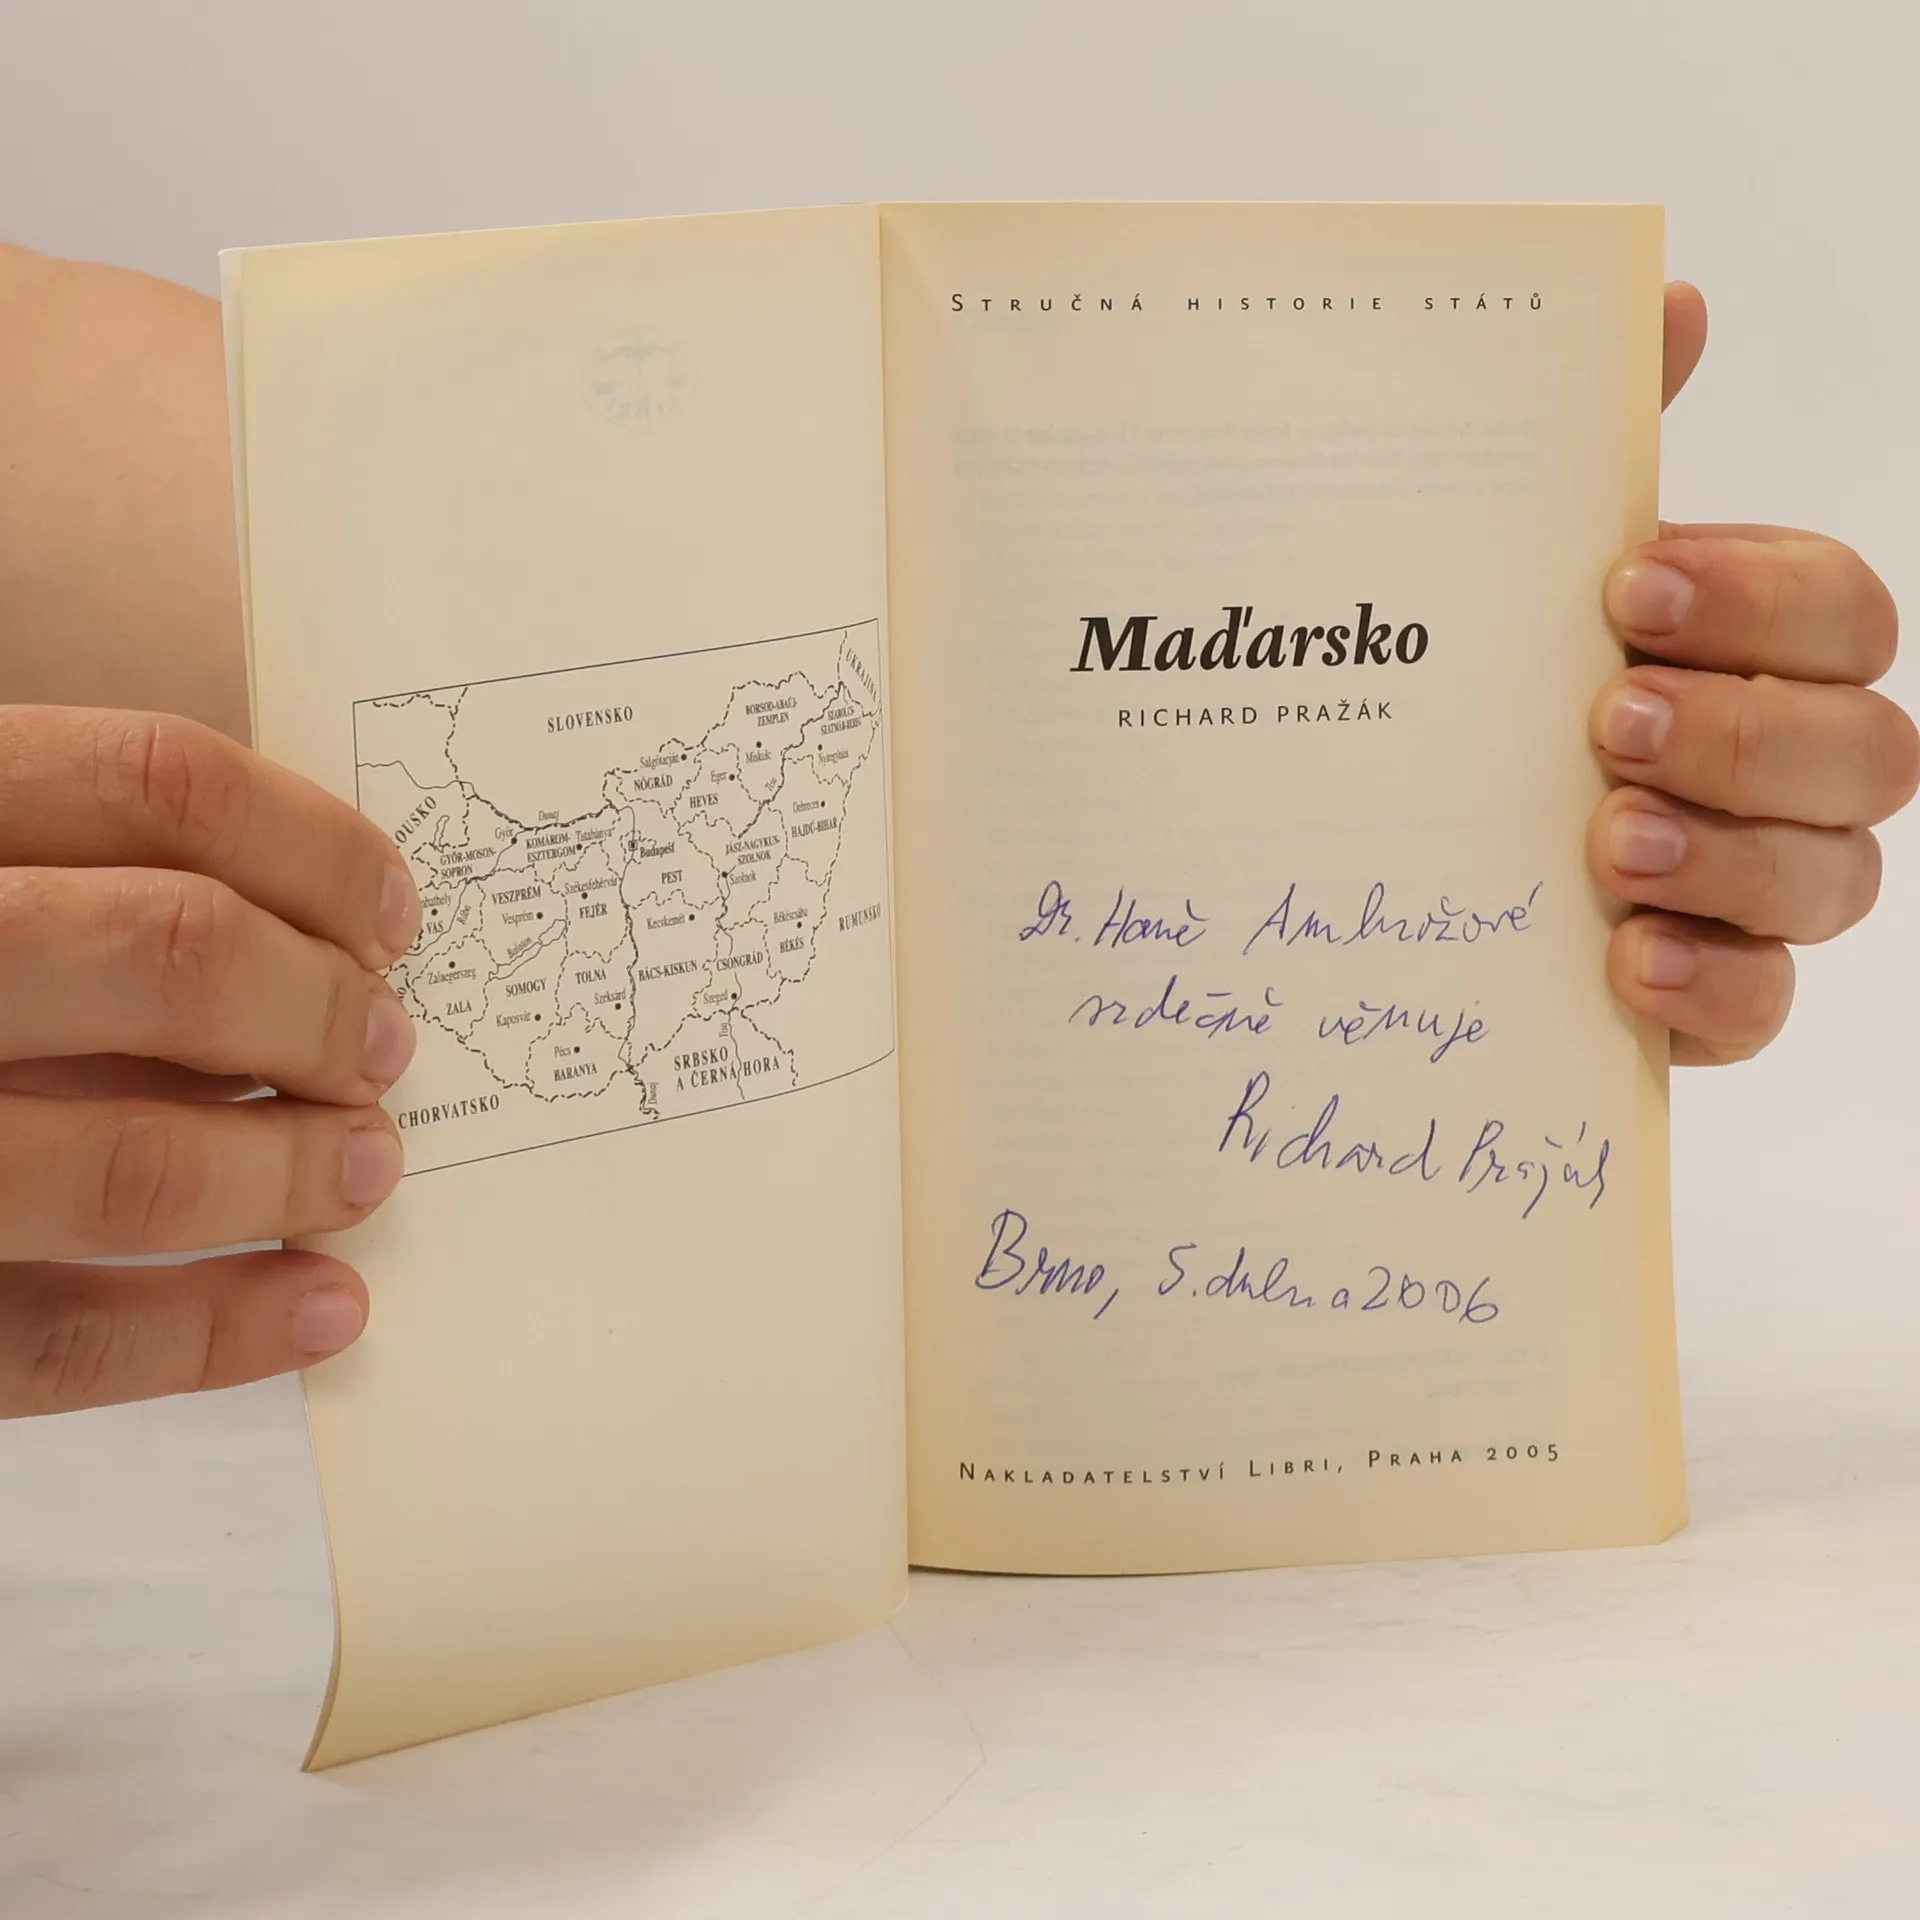 SLOVENSKO
UKRAJINA
BORSOD-ABAÚJ-
ZEMPLÉN
SZABOLCS-
SZATMÁR-BEREG
Miskolc
Nyíregyháza
Salgótarján
NÓGRÁD
Eger
HEVES
Tisa
Debrecen
HAJDÚ-BIHAR
OUSKO
Dunaj
Győr
KOMÁROM-
ESZTERGOM
Tatabánya
GYŐR-MOSON-
SOPRON
Budapešť
JÁSZ-NAGYKUN-
SZOLNOK
PEST
Szolnok
VESZPRÉM
Székesfehérvár
FEJÉR
Vesprém
bathely
VAS
Rába
Kecskemét
Békéscsaba
BÉKÉS
RUMUNSKO
Balaton
Zalaegerszeg
ZALA
SOMOGY
TOLNA
BÁCS-KISKUN
CSONGRÁD
Kaposvár
Szekszárd
Szeged
Pécs
BARANYA
SRBSKO
A ČERNÁ HORA
Dunaj
CHORVATSKO
STRUČNÁ HISTORIE STÁTŮ
Maďarsko
RICHARD PRAŽÁK
Dr. Haně Ambrožové
srdečně věnuje
Richard Pražák
Brno, 5. dubna 2006
NAKLADATELSTVÍ LIBRI, PRAHA 2005